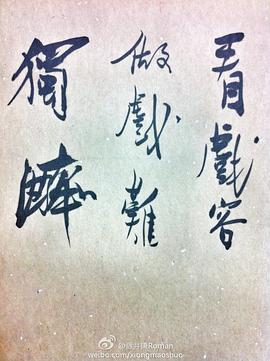 看戲容
做戲難
獨
weibo.com/xiongmaoshuo